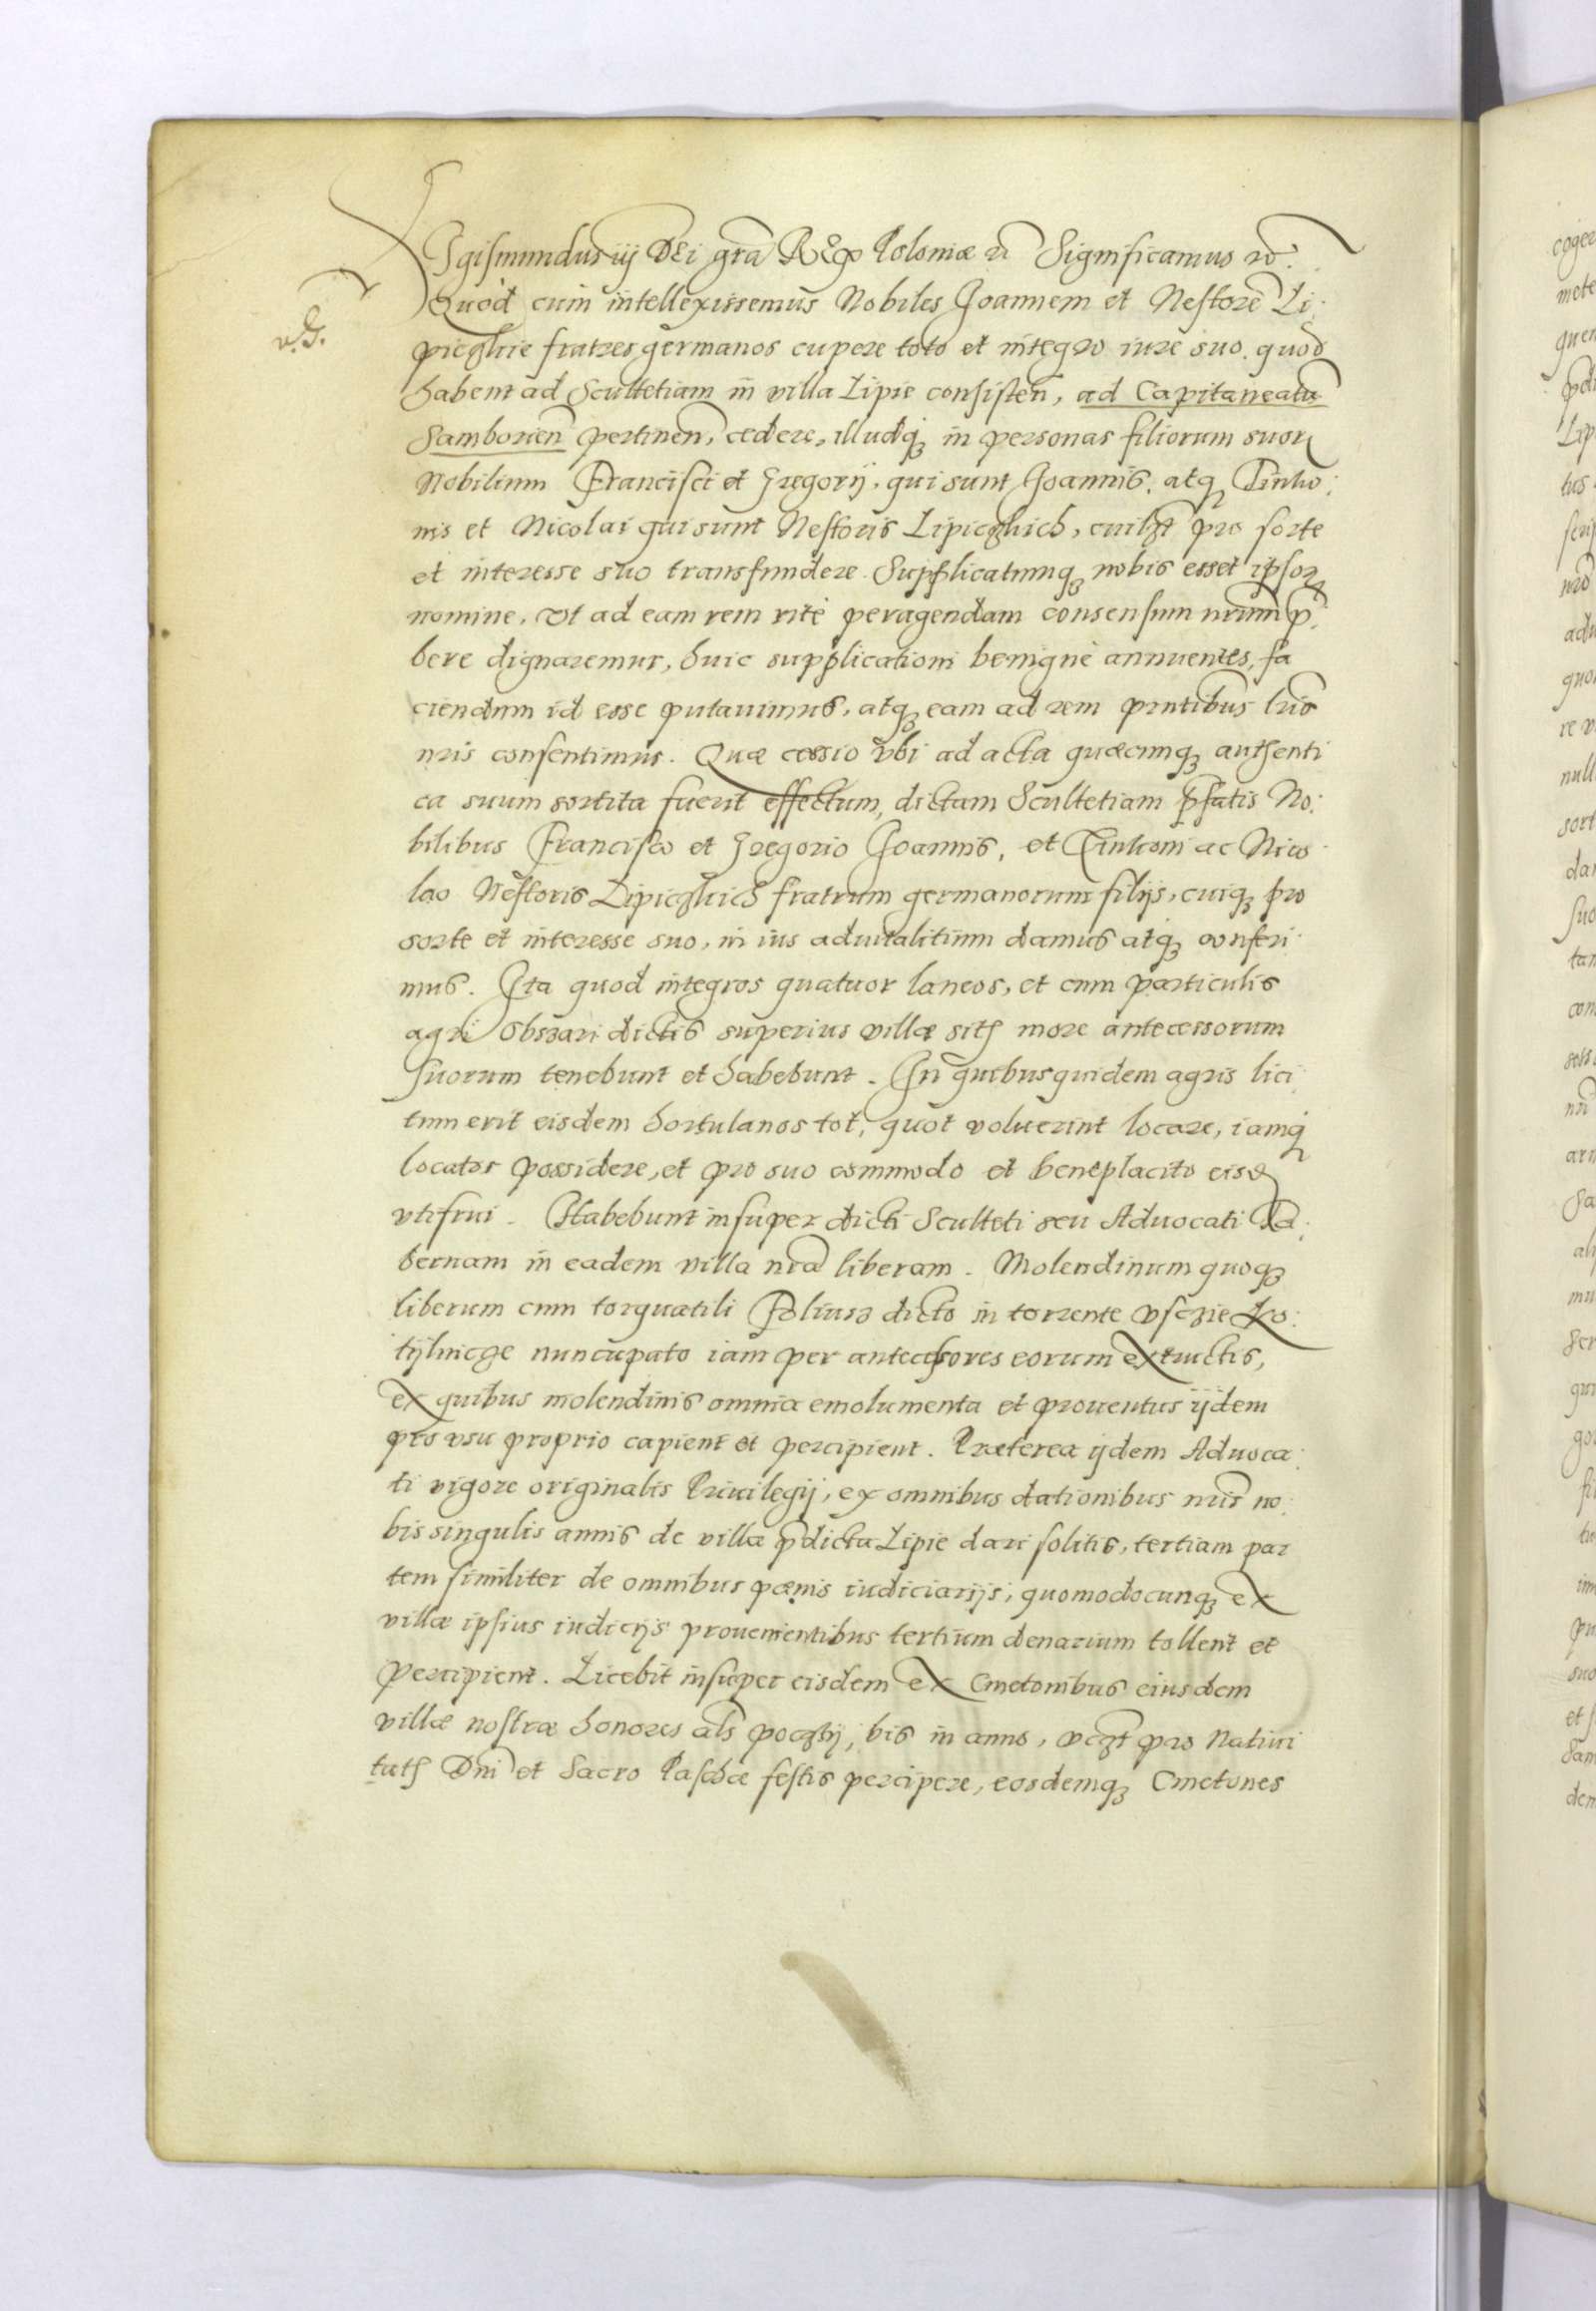 Sigismundus iij DEi grã REx Poloniæ etc. Significamus etc.
v. G.
Quod cum intellexissemus Nobiles Joannem et Nestorẽ Li:
piczkie fratres germanos cupere toto et integro iure suo quod
habent ad Scultetiam in villa Lipie consisteñ, ad Capitaneatũ
Samborień pertineñ, cedere, illudq; in personas filiorum suorũ
Nobilium Francisci et Gregorij, qui sunt Joannis, atq;
nis et Nicolai qui sunt Nestoris Lipiczkich, cuilzt pro sorte
et interesse suo transfundere. Supplicatumq; nobis esset ipsorũ
nomine, Vt ad eam rem ritè peragendam consensum nrũm p̃:
bere dignaremur, huic supplicationi benignè annuentes, fa
ciendum id esse putauimus, atq; eam ad rem pñtibus lris
nris consentimus. Quæ cessio vbi ad acta quæcunq; authenti
ca suum sortita fuerit effectum, dictam Scultetiam p̃fatis No:
bilibus Francisco et Gregorio Joannis, et ac Nico
lao Nestoris Lipiczkich fratrum germanorum filijs, cuiq; pro
sorte et interesse suo, in ius aduitalitium damus atq; conferi
mus. Ita quod integros quatuor laneos, et cum particulis
agri Obszari dictis superius villæ sitis more antecessorum
suorum tenebunt et habebunt. In quibus quidem agris lici
tum erit eisdem hortulanos tot, quot voluerint locare, iamq;
locatos possidere, et pro suo commodo et beneplacito eisd
vtifrui. Habebunt insuper dicti Sculteti seu Aduocati Ta:
bernam in eadem villa nrã liberam. Molendinum quoq;
liberum cum torquatili Foliusz dicto in torrente
nuncupato iam per antecessores eorum extructis,
ex quibus molendinis omnia emolumenta et prouentus ijdem
pro vsu proprio capient et percipient. Præterea ijdem Aduoca:
ti vigore originalis Priuilegij, ex omnibus dationibus nris no:
bis singulis annis de villa p̃dicta Lipie dari solitis, tertiam par
tem similiter de omnibus pœnis iudiciarijs, quomodocunq; ex
villæ ipsius iudicijs prouenientibus tertium denarium tollent et
percipient. Licebit insuper eisdem ex Cmetonibus eiusdem
villæ nostræ honores als poczty, bis in anno, vczt pro Natiui
tatis Dni et Sacro Paschæ festis percipere, eosdemq; Cmetones